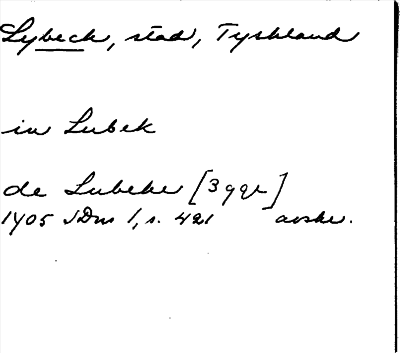 Lybeck, stad, Tyskland
in Lubek
de Lubeke [3 ggr]
1405 SDns 1, s. 421 avskr.